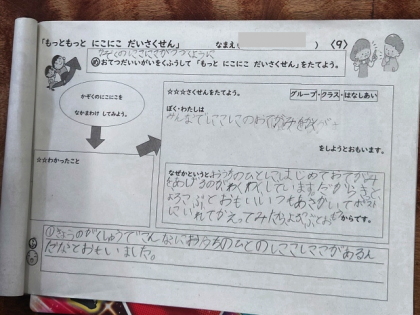 「もっともっと にこにこ だいさくせん」 なまえ( ) 〈9〉
かぞくのにこにこがふえるように
めおてつだいいがいをくふうして「もっと にこにこ だいさくせん」をたてよう。
かぞくのにこにこを
なかまわけ してみよう。
☆☆わかったこと
☆☆☆さくせんをたてよう。
グループ・クラス・はなしあい
ぼく・わたしは
みんなでにこにこのおてがみ
をしようとおもいます。
なぜかというと、おうちのひとにはじめておてがみ
をあげるのがわくわくしていますだからきっと
よろこぶとおもいいつもあさかいてポスト
にいれてかえってみたらよろこぶとおもう からです。
①きょうのがくしゅうでこんなにおうちのひとのにこにこがあるん
だなとおもいました。